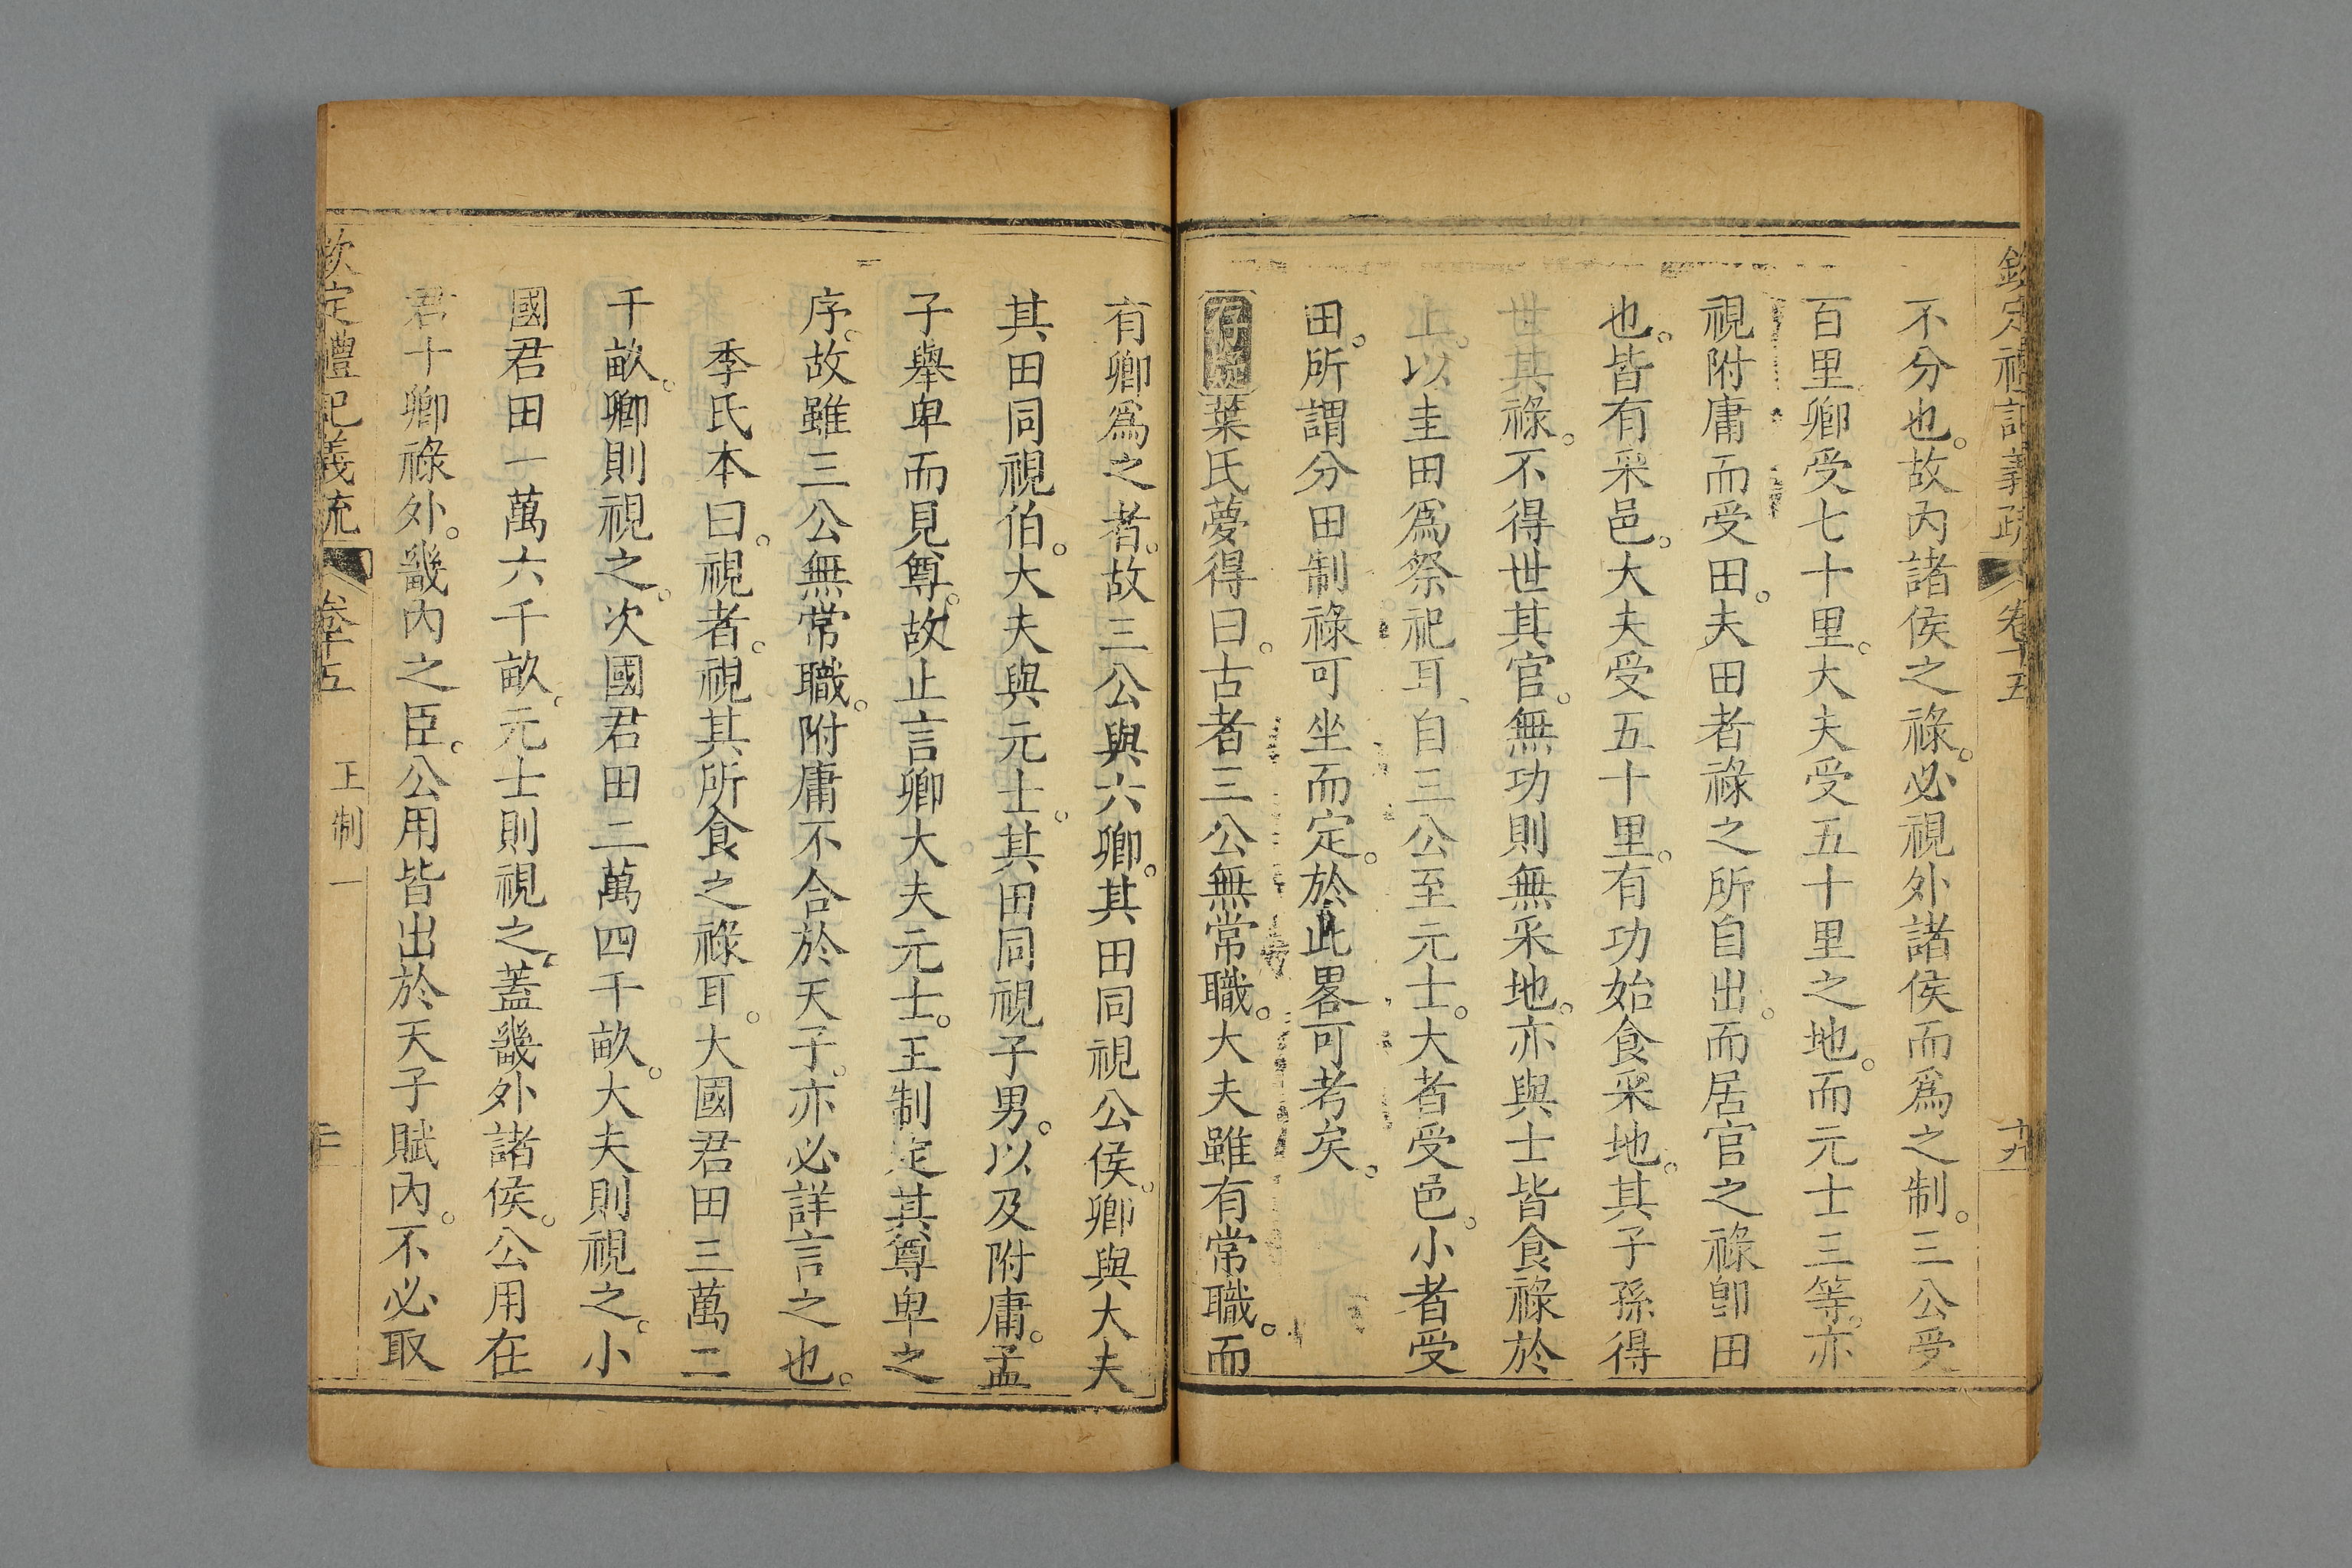 欽定禮記義疏 卷十五 十九
不分也。故內諸侯之祿。必視外諸侯而爲之制。三公受
百里卿受七十里。大夫受五十里之地。而元士三等。亦
視附庸而受田。夫田者祿之所自出。而居官之祿卽田
也。皆有采邑。大夫受五十里。有功始食采地。其子孫得
世其祿。不得世其官。無功則無采地。亦與士皆食祿於
上。以圭田爲祭祀耳、自三公至元士。大者受邑。小者受
田。所謂分田制祿可坐而定。於此畧可考矣。
存疑葉氏夢得曰。古者三公無常職。大夫雖有常職。而
有卿爲之者。故三公與六卿。其田同視公侯。卿與大夫
其田同視伯。大夫與元士。其田同視子男。以及附庸。孟
子舉卑而見尊。故止言卿大夫元士。王制定其尊卑之
序。故雖三公無常職。附庸不合於天子。亦必詳言之也。
季氏本曰。視者。視其所食之祿耳。大國君田三萬二
千畝。卿則視之。次國君田二萬四千畝。大夫則視之。小
國君田一萬六千畝。元士則視之。蓋畿外諸侯。公用在
君十卿祿外。畿內之臣。公用皆出於天子賦內。不必取
欽定禮記義疏 卷十五 王制一 二十